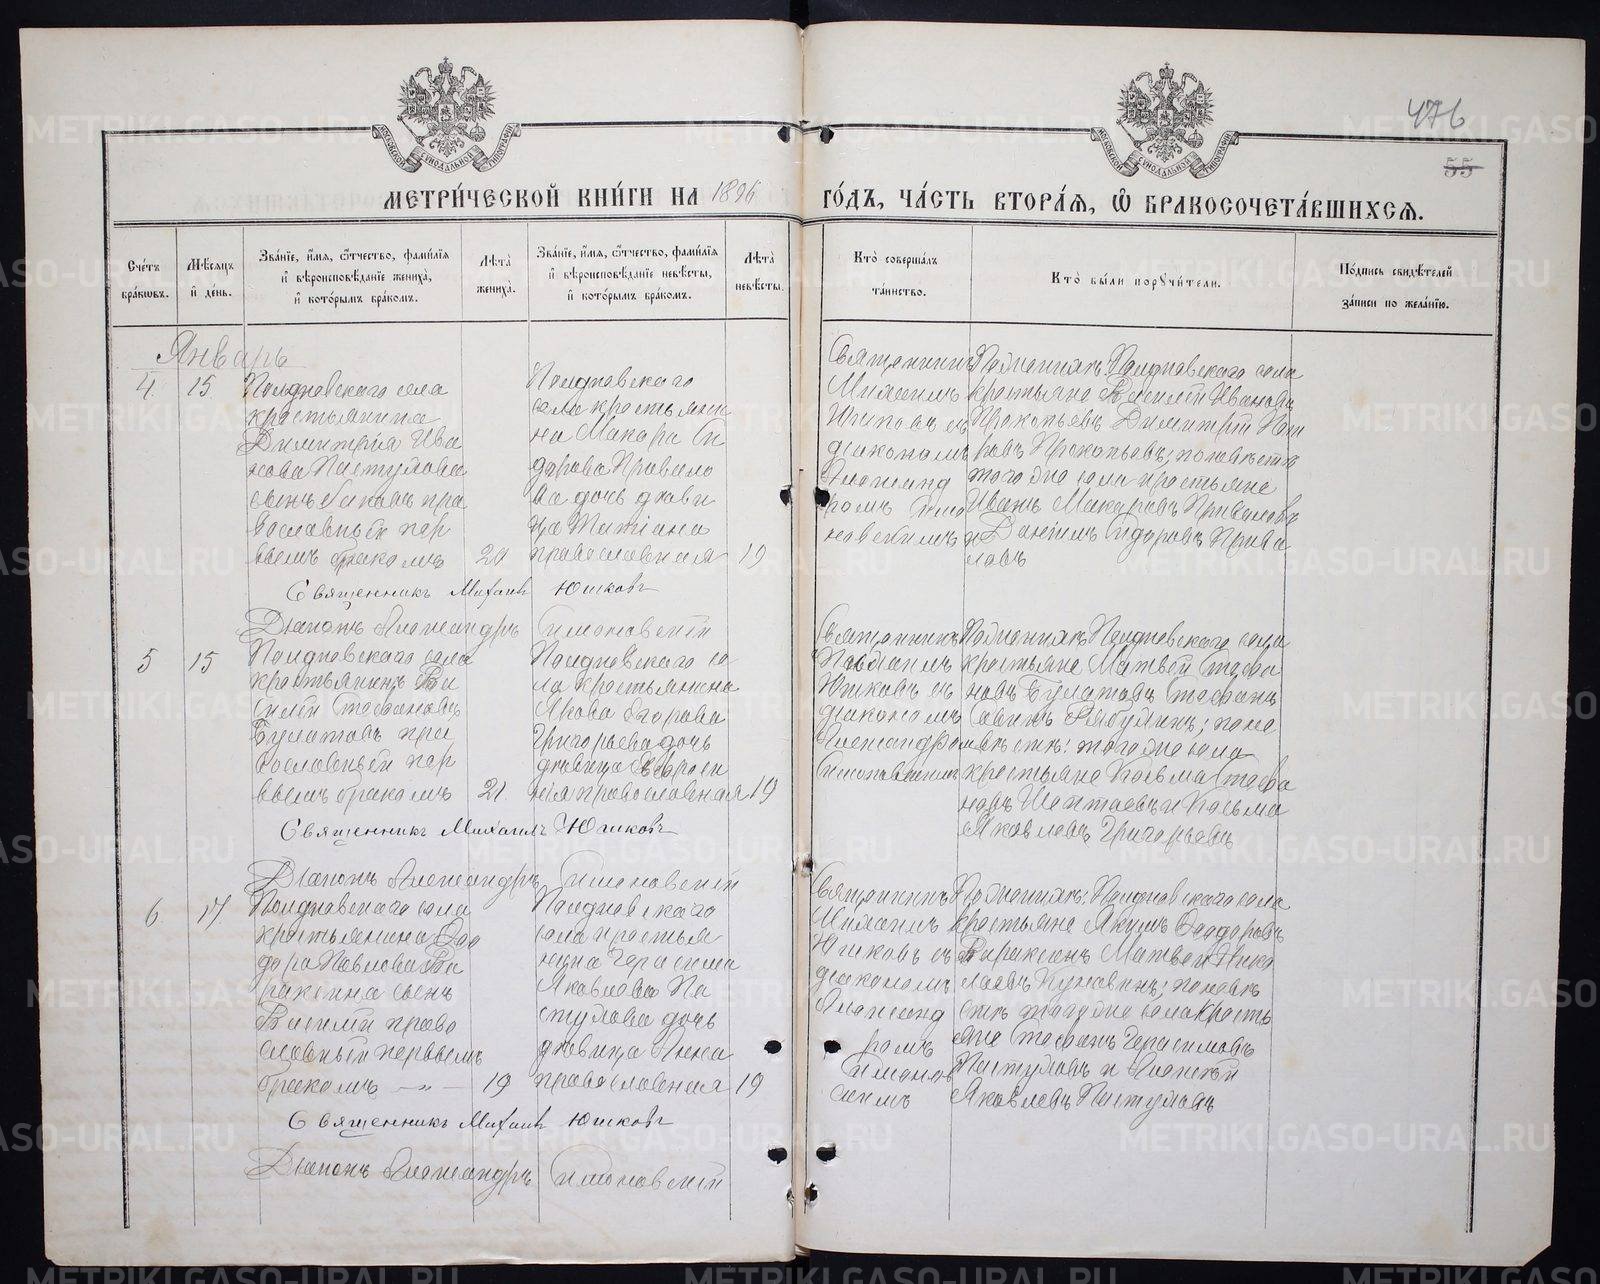 476
55
МОСКОВСКОЙ СѴНОДАЛЬНОЙ ТИПОГРАФІИ
МОСКОВСКОЙ СѴНОДАЛЬНОЙ ТИПОГРАФІИ
МЕТРИ́ЧЕСКОЙ КНИ́ГИ НА 1896 ГО́ДЪ, ЧА́СТЬ ВТОРА́Я, Ѽ БРАКОСОЧЕТА́ВШИХСЯ.
Сче́тъ бра́кѡвъ.
Мѣ́сяцъ и҆ де́нь.
Зва́нїе, и҆́мя, ѻ҆́тчество, фами́лїя и҆ вѣроисповѣ́данїе жениха̀, и҆ кото́рымъ бра́комъ.
Лѣ́та жениха̀.
Зва́нїе, и҆́мя, ѻ҆́тчество, фами́лїя и҆ вѣроисповѣ́данїе невѣ́сты, и҆ кото́рымъ бра́комъ.
Лѣ́та невѣ́сты.
Кто̀ соверша́лъ та́инство.
Кто̀ бы́ли порꙋчи́тели.
По́дпись свидѣ́телей за́писи по жела́нїю.
Январь
4. 15.
Полдневскаго села
крестьянина
Димитрія Ива
нова Пастухова
сынъ
православный пер
вымъ бракомъ
20
Полдневскаго
села крестьяни
на Макара Си
дорова Привало
ва дочь дѣви
ца Татіана
православная
19
Священникъ
Михаилъ
Юшковъ съ
діакономъ
Александ
ромъ Симо
новскимъ
По женихѣ: Полдневскаго села
крестьяне Василій Ивановъ
Прокопьевъ Димитрій
Прокопьевъ; по невѣстѣ
того же села крестьяне
Иванъ Макаровъ Приваловъ
и Даніилъ Сидоровъ Прива
ловъ
Священникъ Михаилъ Юшковъ
Діаконъ Александръ Симоновскій
5 15
Полдневскаго села
крестьянинъ Ва
силій Стефановъ
Булатовъ пра
вославный пер
вымъ бракомъ
21.
Полдневскаго се
ла крестьянина
Якова Егорова
Григорьева дочь
дѣвица Евфросинія
православная
19
Священникъ
Михаилъ
Юшковъ съ
діакономъ
Александромъ
Симоновскимъ
По женихѣ Полдневскаго села
крестьяне Матвей Стефа
новъ Булатовъ Стефанъ
Савинъ; по не
вѣстѣ: того же села
крестьяне Косьма Стефа
новъ и Косьма
Яковлевъ Григорьевъ
Священникъ Михаилъ Юшковъ
Діаконъ Александръ Симоновскій
6. 17.
Полдневскаго села
крестьянина Ѳео
дора Павлова Ба
раксина сынъ
Василій право
славный первымъ
бракомъ
19
Полдневскаго
села крестья
нина Герасима
Яковлева Па
стухова дочь
дѣвица Анна
православная
19
Священникъ
Михаилъ
Юшковъ съ
діакономъ
Александ
ромъ
Симонов
скимъ
По женихѣ: Полдневскаго села
крестьяне Якимъ Ѳеодоровъ
Бараксинъ Матвей Нико
лаевъ; по невѣ
стѣ того же села кресть
яне Стефанъ Герасимовъ
Пастуховъ и Алексѣй
Яковлевъ Пастуховъ
Священникъ Михаилъ Юшковъ
Діаконъ Александръ Симоновскій
METRIKI.GASO-URAL.RU